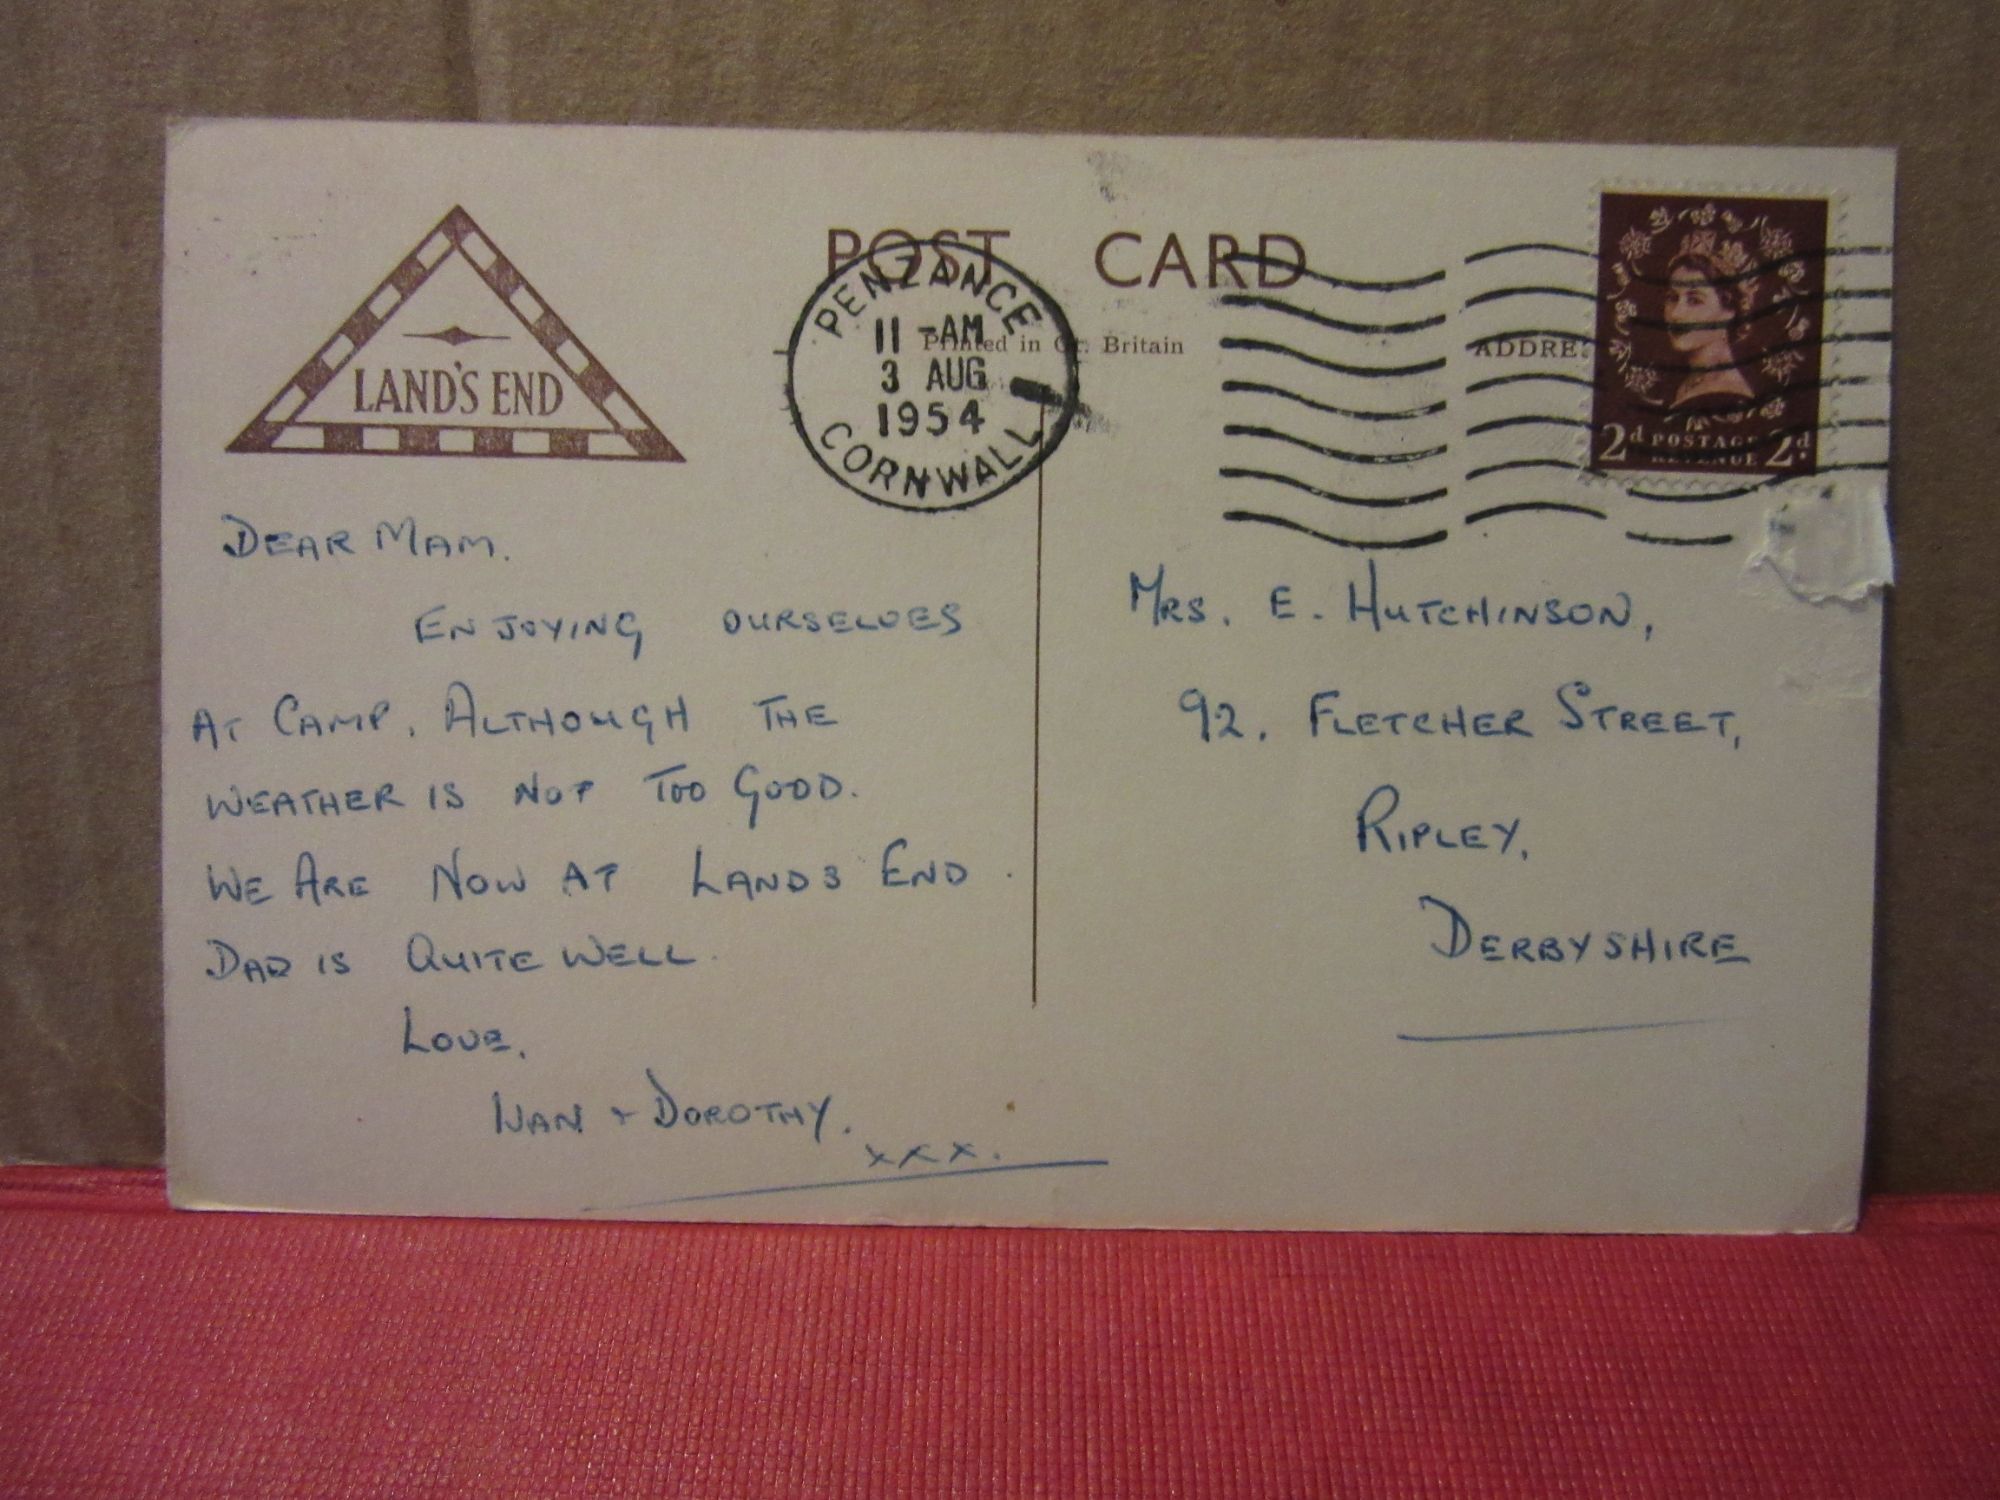 LAND'S END
POST CARD
PENZANCE
11 - AM
3 AUG
1954
CORNWALL
Printed in Gt. Britain
ADDRE
2d POSTAGE 2d
REVENUE
DEAR MAM.
ENJOYING OURSELVES
AT CAMP. ALTHOUGH THE
WEATHER IS NOT TOO GOOD.
WE ARE NOW AT LANDS END.
DAD IS QUITE WELL.
LOVE,
& DOROTHY.
xxx.
MRS. E. HUTCHINSON,
92. FLETCHER STREET,
RIPLEY,
DERBYSHIRE